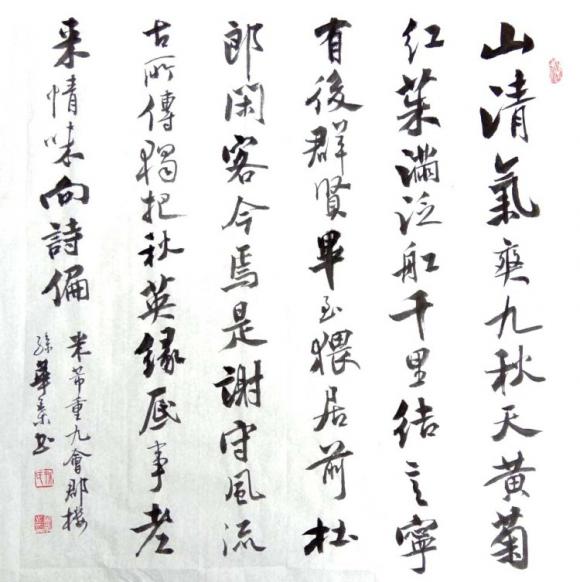 山清氣爽九秋天黄菊
红茱滿泛船千里结言寧
有後群賢畢至猥居前杜
郎閑客今焉是謝守風流
古所傳獨把秋英緣底事老
来情味向詩偏
米芾重九會郡樓
孫華书